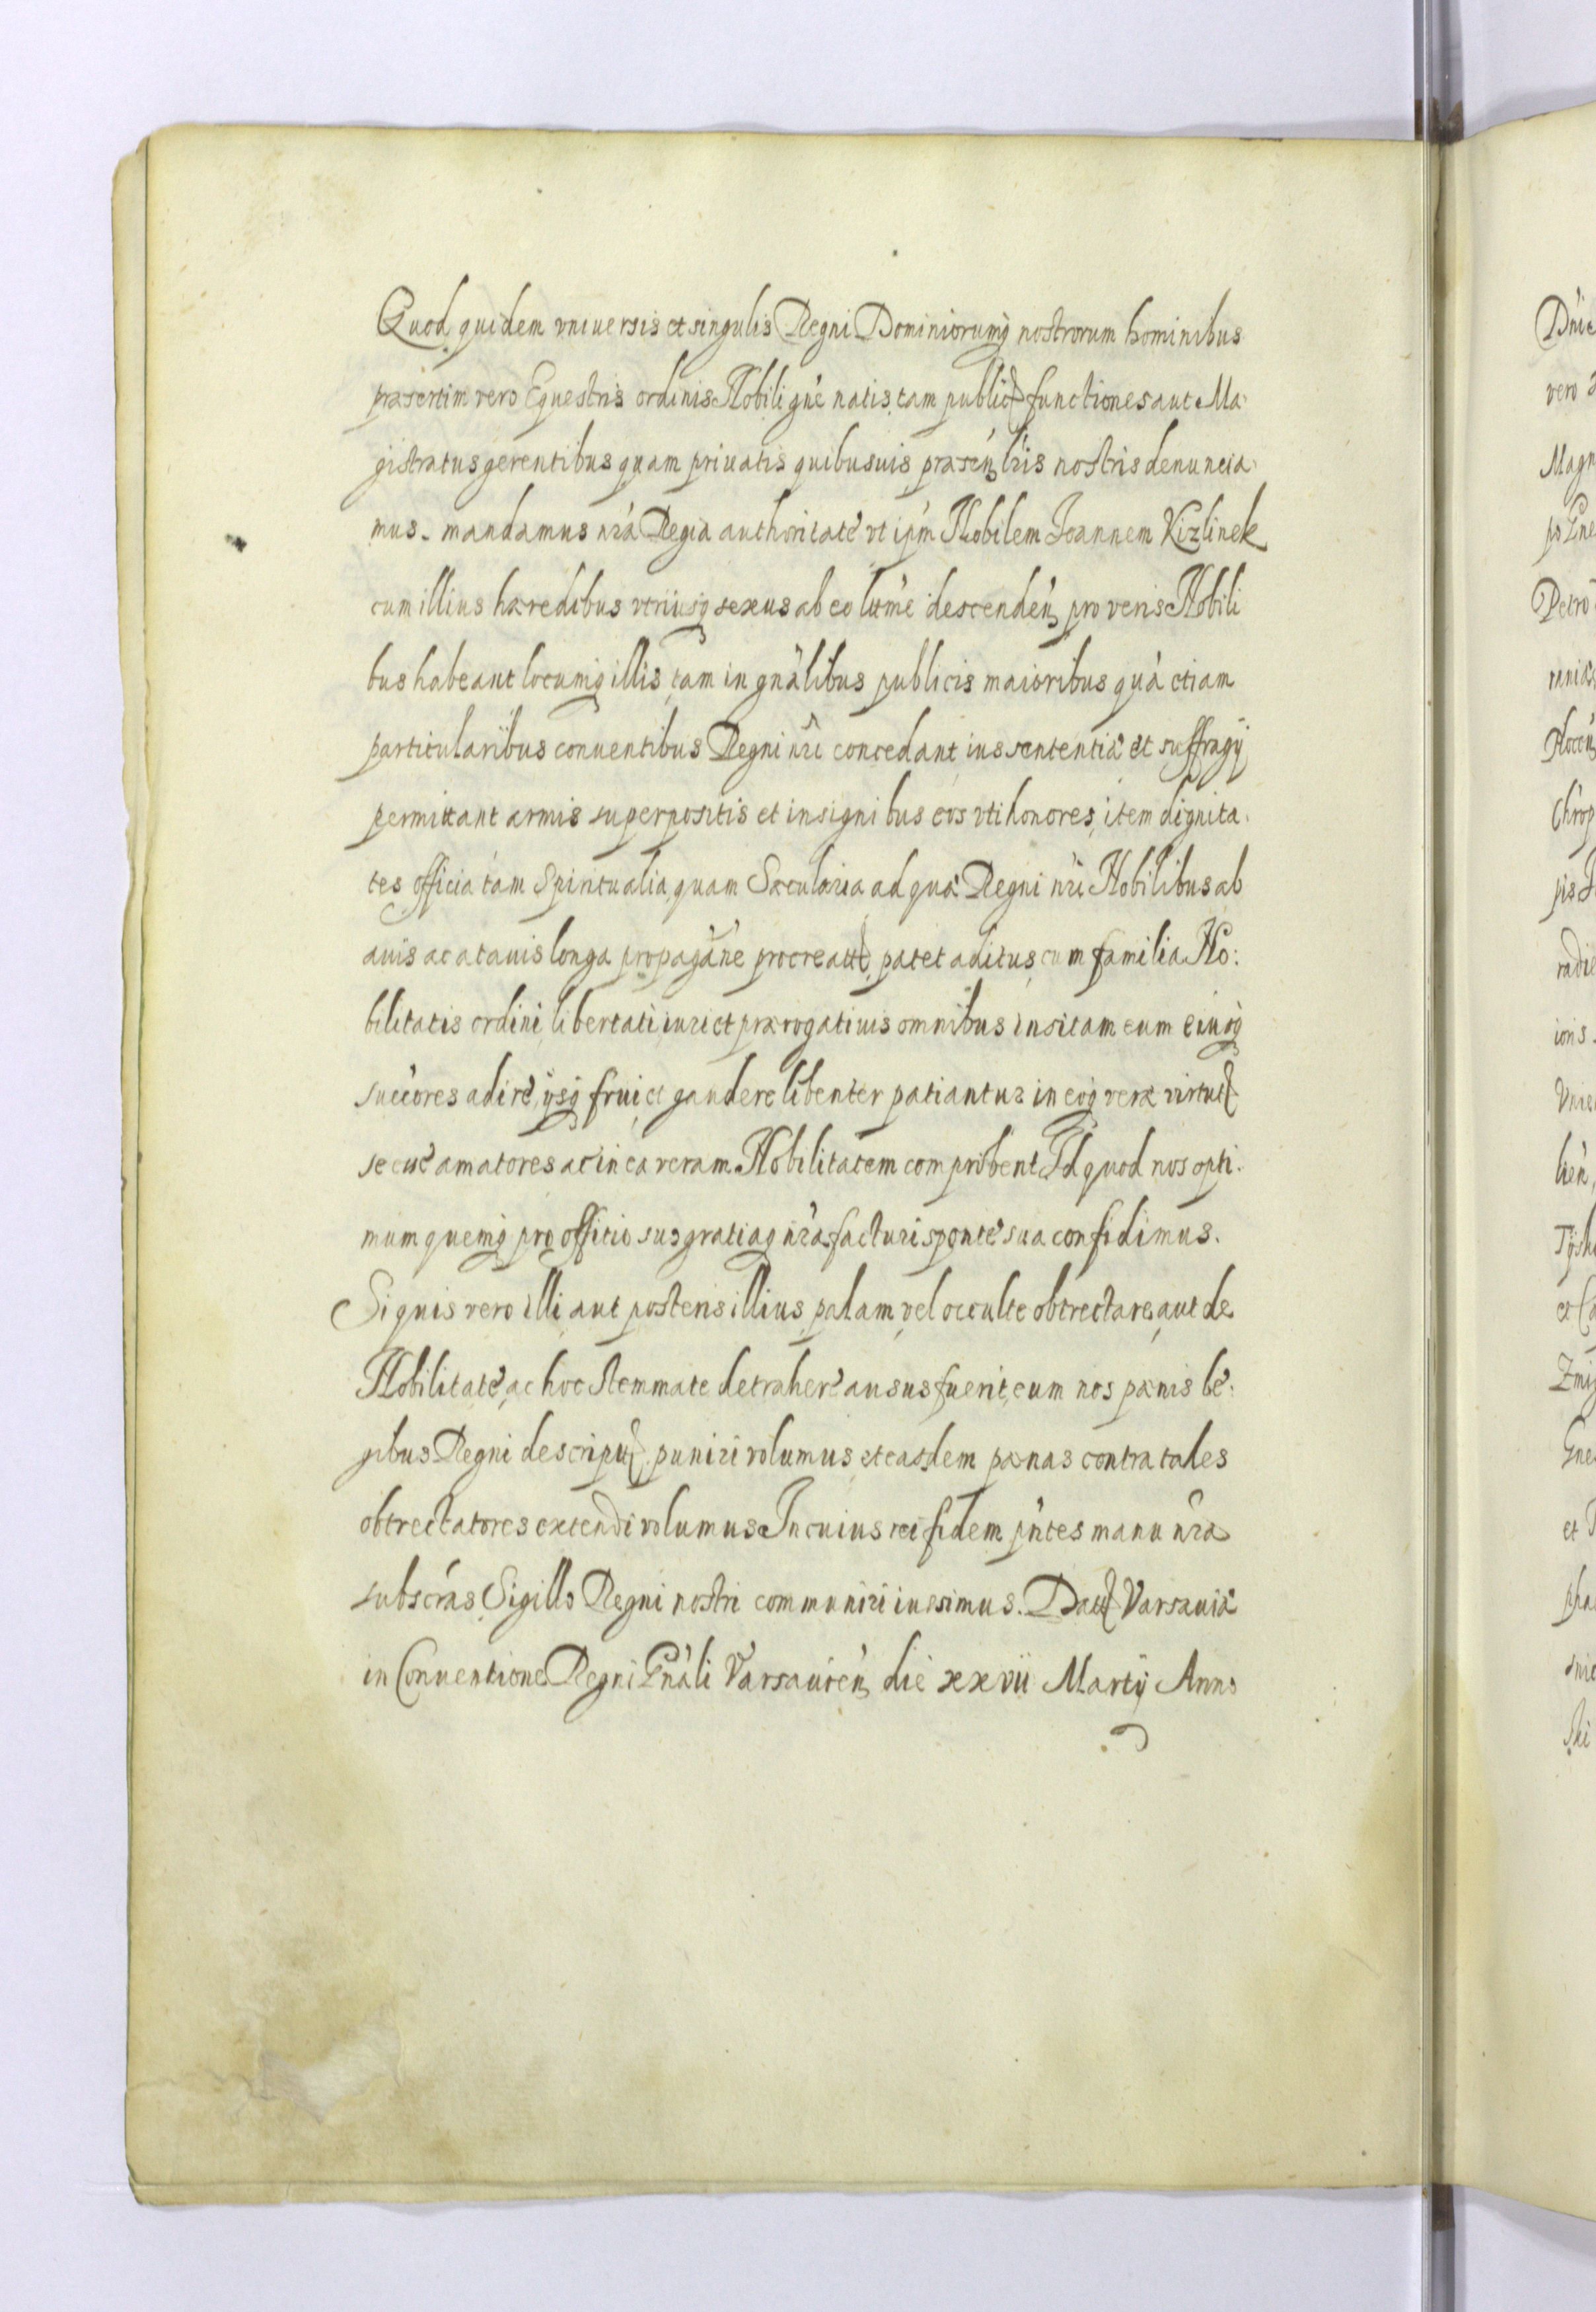 Quod quidem vniuersis et singulis Regni Dominiorumq nostrorum hominibus
præsertim vero Equestris ordinis Nobili gñe natis, tam public functiones aut Ma
gistratus gerentibus quam priuatis quibusuis præseñ lr̃is nostris denuncia
mus. mandamus nr̃a Regia authoritate vt ip̃m Nobilem Ioannem Kizlinek
cum illius hæredibus vtriusq sexus ab eo ltt̃me descendeñ pro veris Nobili
bus habeant locumq illis tam in gñalibus publicis maioribus quà etiam
particularibus conuentibus Regni nr̃i concedant ius sententiæ et suffragij
permittant armis superpositis et insignibus eos vti honores, item dignita
tes officia tam Spiritualia, quam Sæcularia ad quæ Regni nr̃i Nobilibus ab
auis ac atauis longa propagãne procreatt patet aditus cum familia No:
bilitatis ordini libertati iuri et prærogatiuis omnibus insitam eum eiusq
succ̃ores adire, ijsq frui et gaudere libenter patiantur in eoq veræ virtut
se cuè amatores ac in ea veram Nobilitatem comprobent Id quod nos opti.
mum quemq pro offitio suo gratiaq nr̃a facturi sponte sua confidimus.
Si quis vero illi aut posteris illius palam vel occulte obtrectare, aut de
Nobilitate, ac hoc stemmate detrahere ausus fuerit, eum nos pœnis le:
gibus Regni descript puniri volumus, et easdem pœnas contra tales
obtrectatores extendi volumus In cuius rei fidem p̃ntes manu nr̃a
subscr̃as Sigillo Regni nostri communiri iussimus. Datt Varsauiæ
in Conuentione Regni Gñali Varsauieñ die xxvii Martij Anno